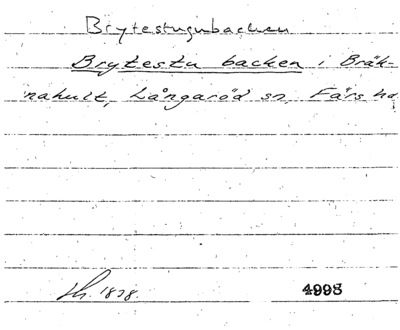 Brytestugubacken
Brytestu backen i Bräk-
nahult, Långaröd sn, Färs hd
1898.
4995